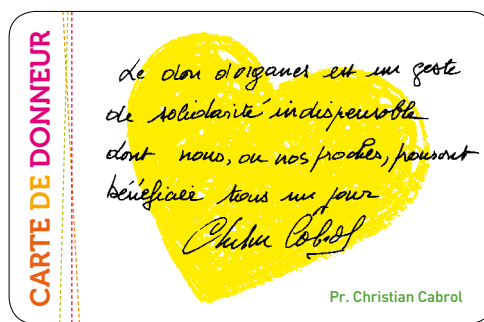 CARTE DE DONNEUR
Le don d'organes est un geste
de solidarité indispensable
dont nous, ou nos proches, pouvons
bénéficier tous un jour
Christian Cabrol
Pr. Christian Cabrol